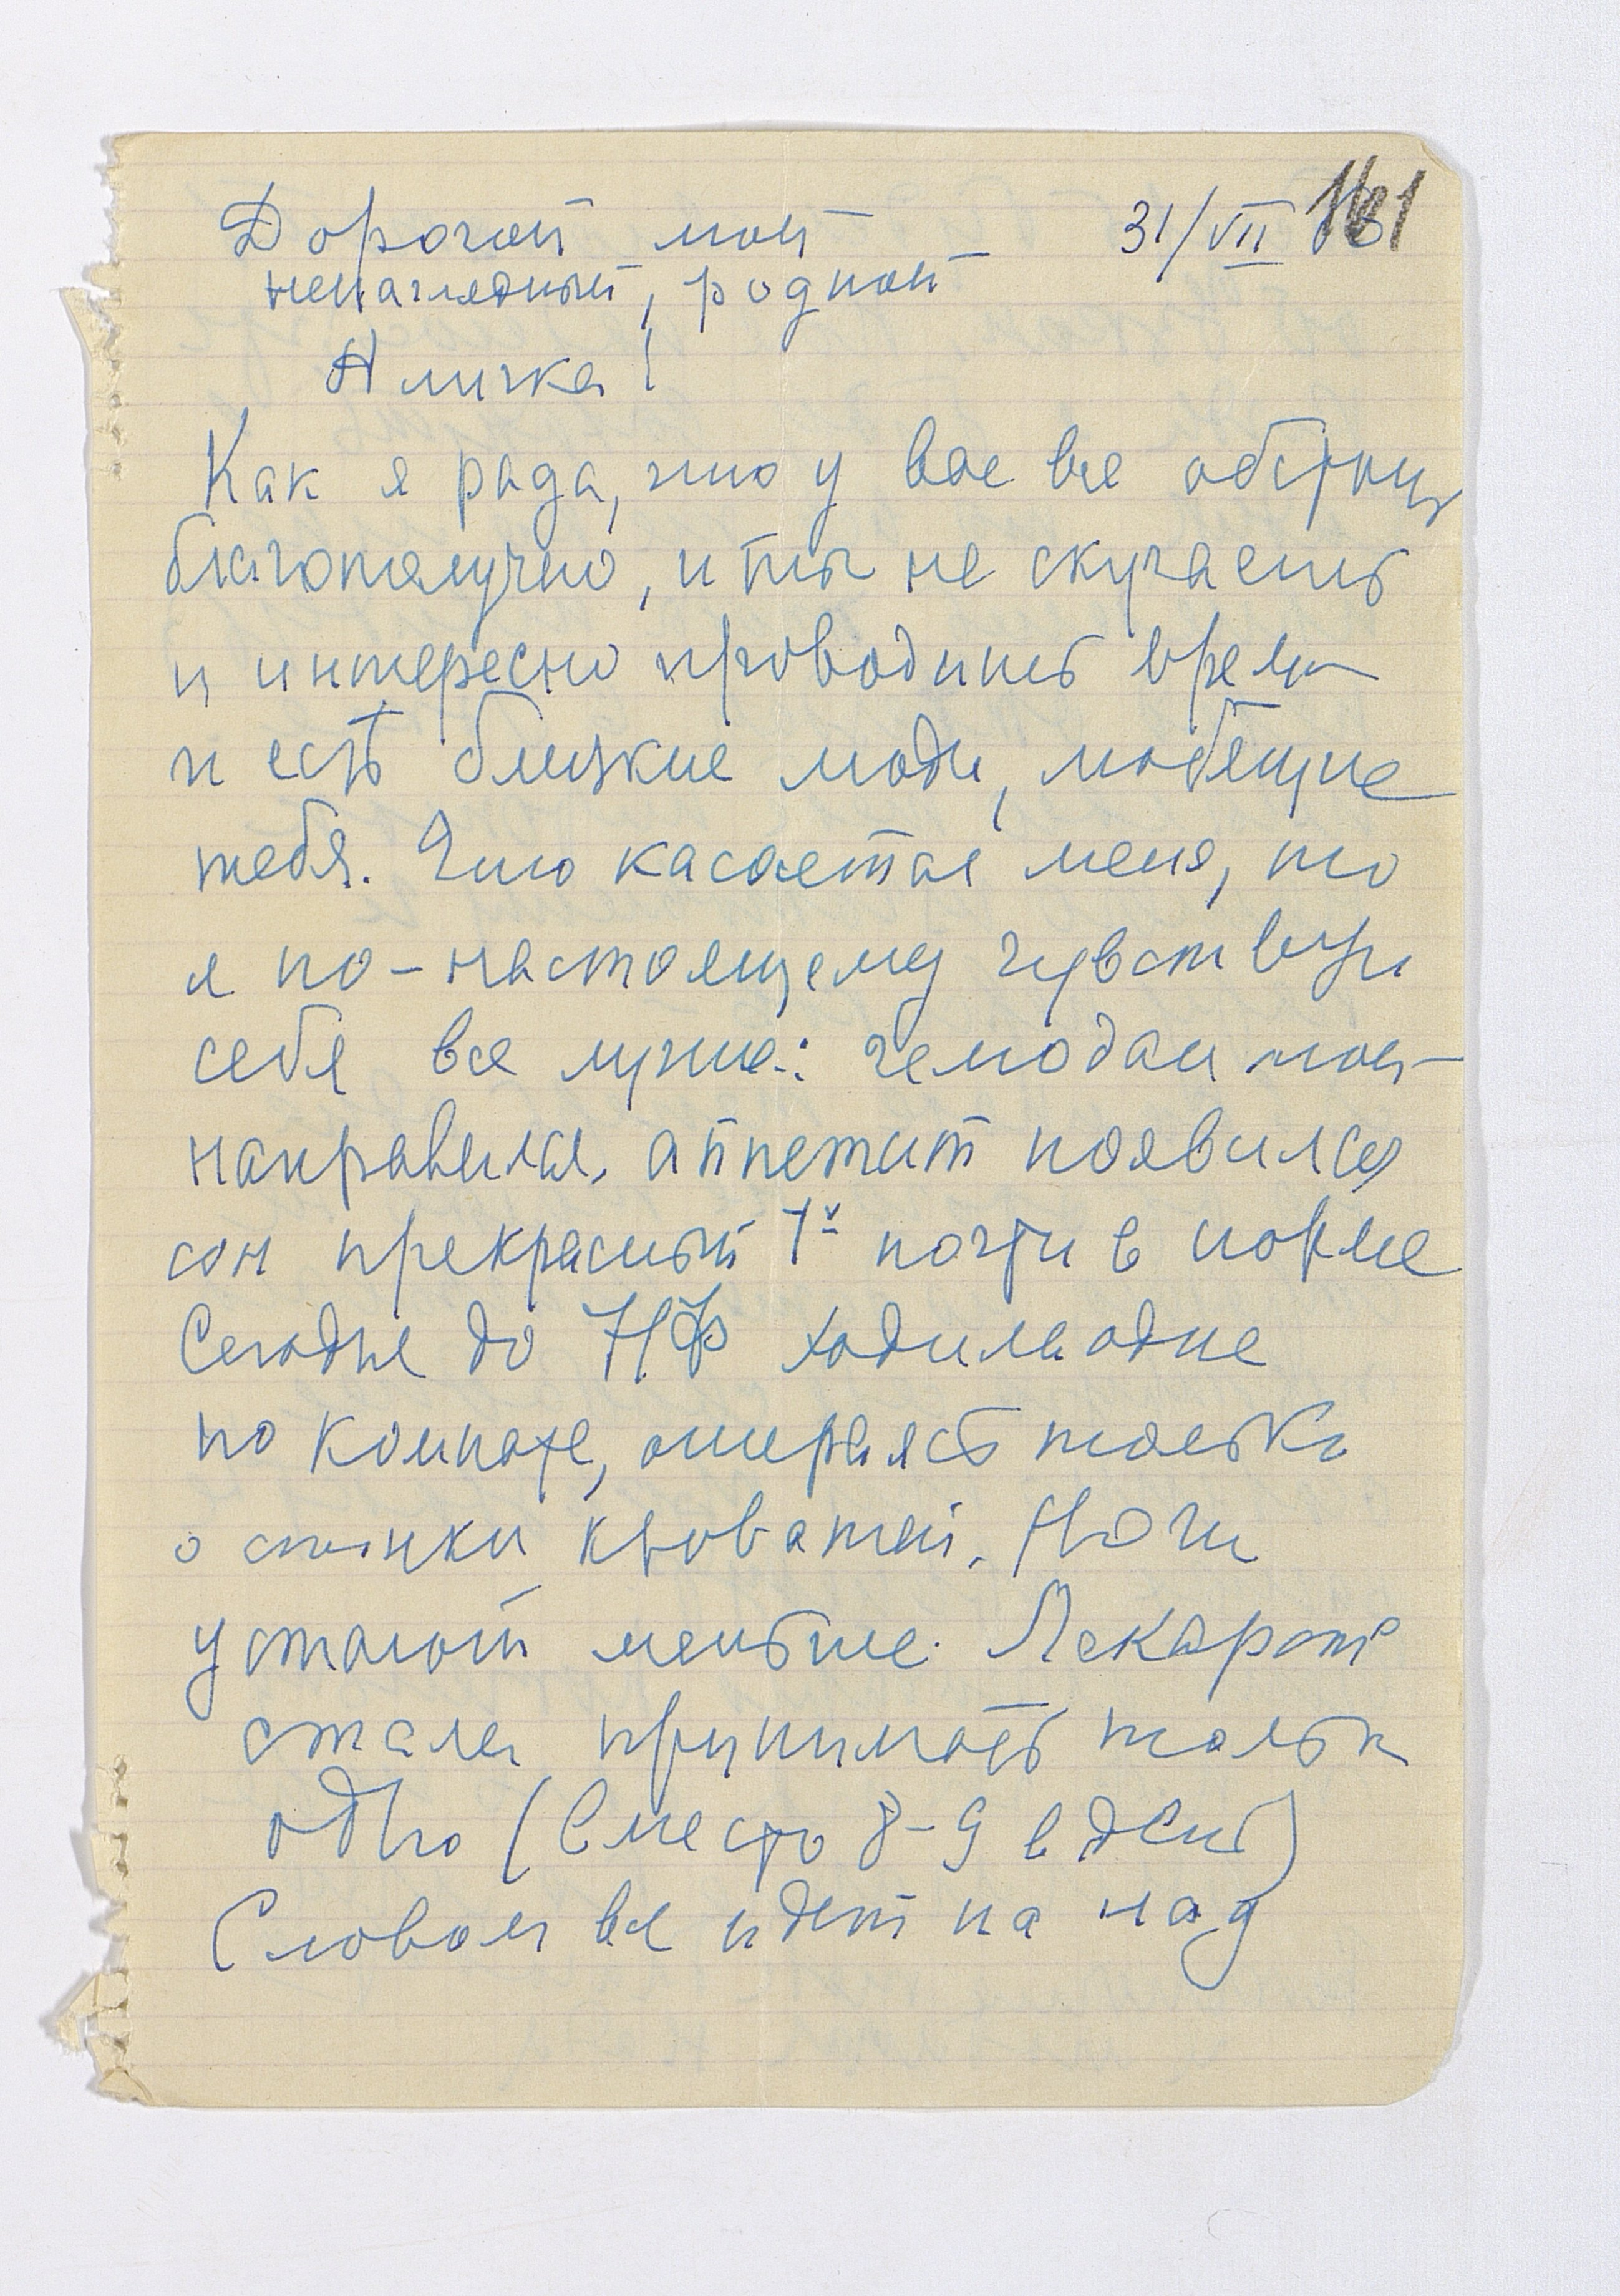 Дорогой мой 31/VII
ненаглядный, родной
Аличка!
Как я рада, что у вас все обстоит
благополучно, и ты не скучаешь
и интересно проводишь время
и есть близкие люди, любящие
тебя. Что касается меня, то
я по-настоящему чувствую
себя все лучше: чемодан мой
направился, аппетит появился
сон прекрасный t° почти в норме
Сегодня до ходила одна
по комнате, опираясь только
о спинки кроватей. Ноги
устают меньше. Лекарств
стала принимать только
одно (вместо 8-9 в день)
Словом все идет на лад